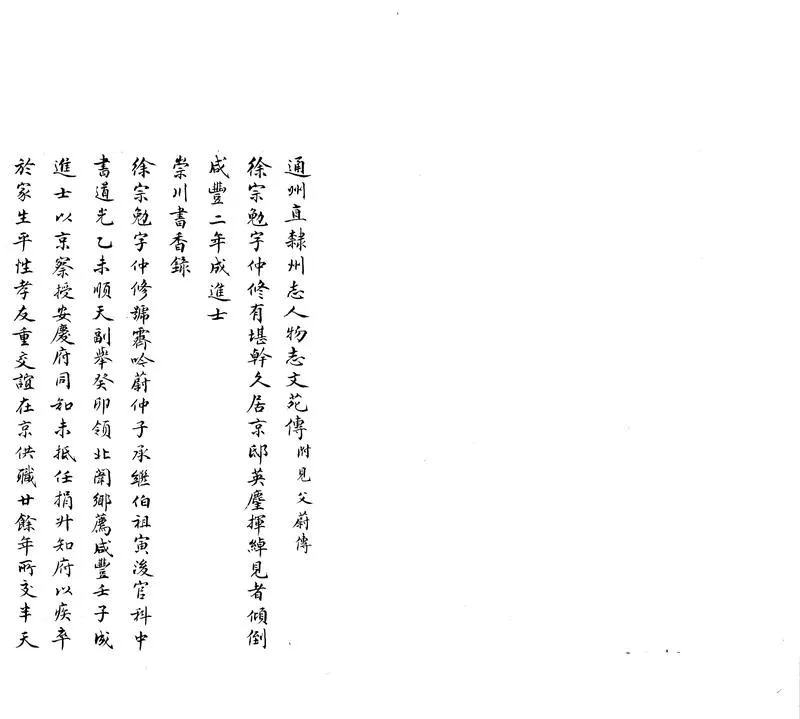 通州直隸州志人物志文苑傳 附見父蔚傳
徐宗勉字仲修有堪幹久居京邸英麈揮綽見者傾倒
咸豐二年成進士
崇川書香錄
徐宗勉字仲修號霽吟蔚仲子承繼伯祖寅後官科中
書道光乙未順天副舉癸卯領北闈鄉薦咸豐壬子成
進士以京察授安慶府同知未抵任捐升知府以疾卒
於家生平性孝友重交誼在京供職廿餘年所交半天